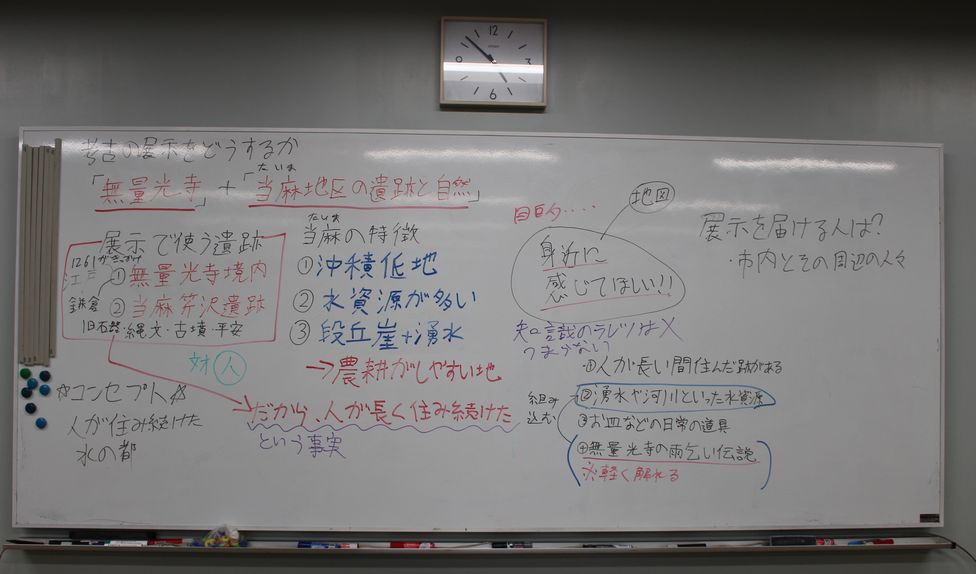 考古の展示をどうするか
「無量光寺」+「当麻地区の遺跡と自然」
たいま
展示で使う遺跡
1261がきっかけ
江戸
①無量光寺境内
鎌倉
②当麻芹沢遺跡
旧石器・縄文・古墳・平安
☆コンセプト☆
人が住み続けた
水の都
たいま
当麻の特徴
①沖積低地
②水資源が多い
③段丘崖+湧水
→農耕がしやすい地
対人
だから、人が長く住み続けた
という事実
目的・・・・
地図
身近に
感じてほしい!!
知識のラレツはX
つまらない
・①人が長い間住んだ跡がある
組み
込む
②湧水や河川といった水資源
③お皿などの日常の道具
④無量光寺の雨乞い伝説
※軽く触れる
展示を届ける人は?
・市内とその周辺の人々
12
3
6
9